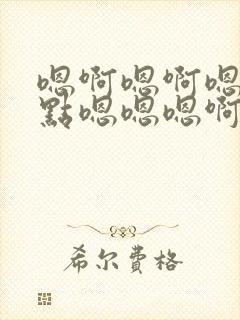 嗯啊嗯啊嗯
點嗯嗯嗯啊
希尔费格